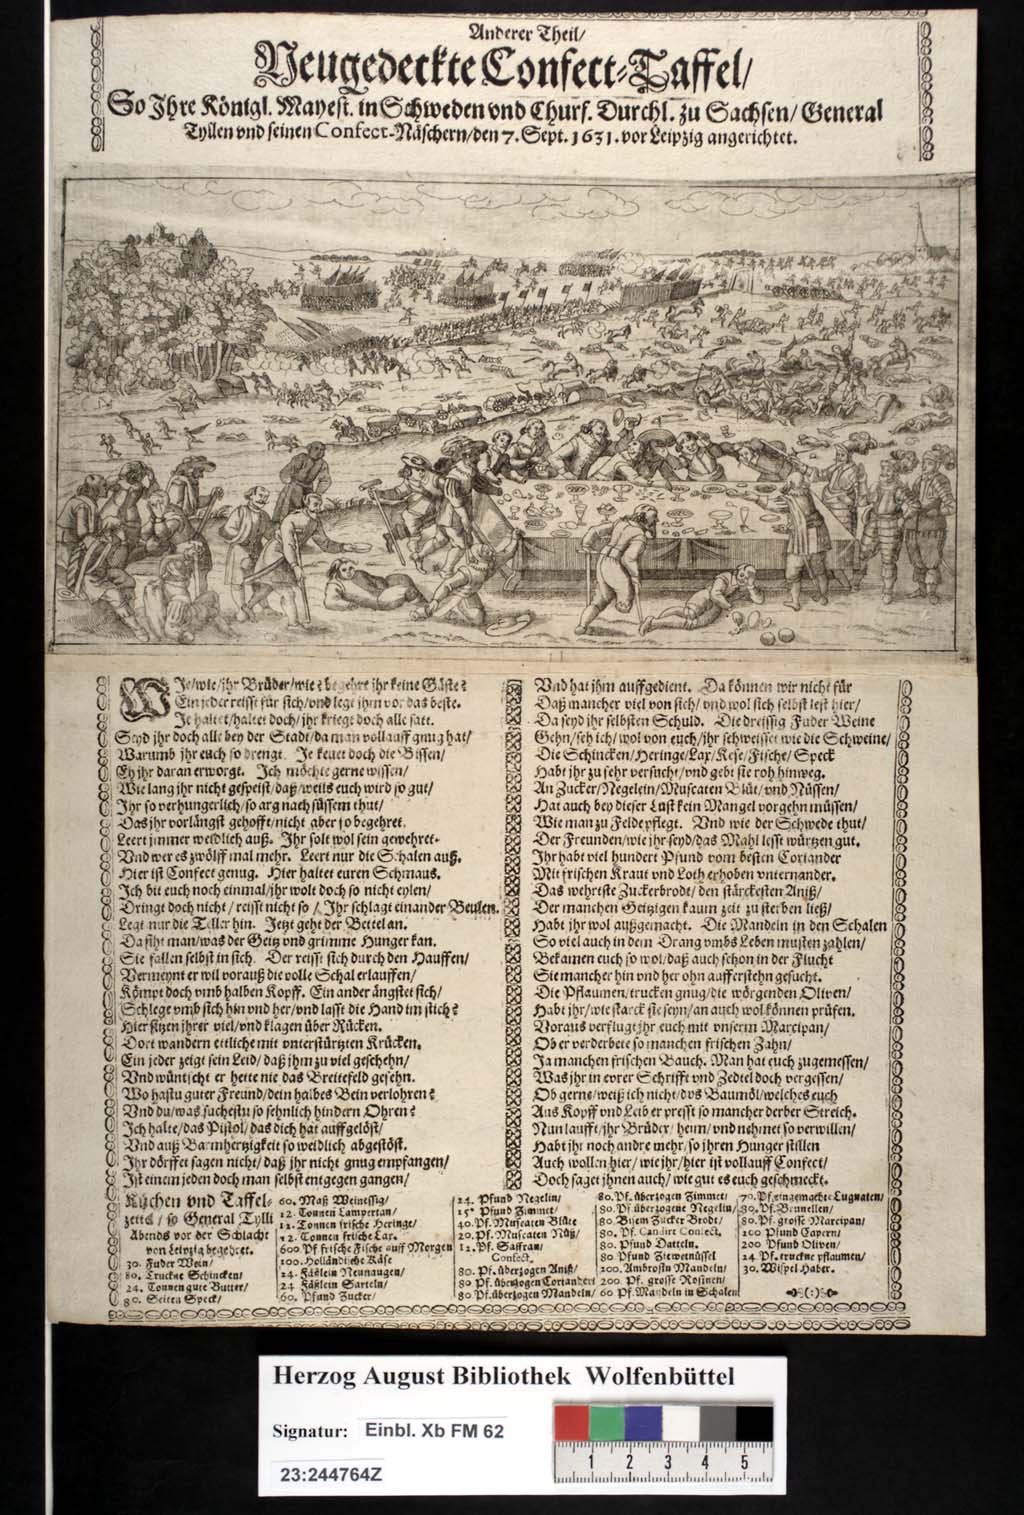 Anderer Theil/
Neugedeckte Confect-Taffel/
So Ihre Königl. Mayest. in Schweden vnd Churf. Durchl. zu Sachsen/ General
Tyllen vnd seinen Confect-Näschern/den 7. Sept. 1631. vor Leipzig angerichtet.
WIe/wie/jhr Brüder/wie? begehre jhr keine Gäste?
Ein jeder reisse für sich/vnd lege jhm vor das beste.
Je haltet/haltet doch/jhr kriegt doch alle satt.
Seyd jhr doch alle bey der Stadt/da man vollauff gnug hat/
Warumb jhr euch so drengt. Je kewet doch die Bissen/
Eh jhr daran erworgt. Ich möchte gerne wissen/
Wie lang jhr nicht gespeist/daß/weils euch wird so gut/
Ihr so verhungerlich/so arg nach süssem thut/
Das jhr vorlängst gehofft/nicht aber so begehret.
Leert jmmer weidlich auß. Ihr solt wol sein gewehret.
Vnd wer es zwölff mal mehr. Leert nur die Schalen auß.
Hier ist Confect genug. Hier haltet euren Schmaus.
Ich bit euch noch einmal/jhr wolt doch so nicht eylen/
Dringt doch nicht/reisst nicht so/Ihr schlagt einander Beulen.
Legt nur die Teller hin. Jetzt geht der Bettel an.
Da siht man/was der Geitz vnd grimme Hunger kan.
Sie fallen selbst in sich. Der reisst sich durch den Hauffen/
Vermeynt er wil vorauß die volle Schal erlauffen/
Kömpt doch vmb halben Kopff. Ein ander ängstet sich/
Schlege vmb sich hin vnd her/vnd lasst die Hand im stich?
Hier sitzen jhrer viel/vnd klagen über Rücken.
Dort wandern ettliche mit vnterstürtzten Krücken.
Ein jeder zeigt sein Leid/daß jhm zu viel geschehn/
Vnd wüntscht er hette nie das Breitefeld gesehn.
Wo hastu guter Freund/dein halbes Bein verlohren?
Vnd du/was suchestu so sehnlich hindern Ohren?
Ich halte/das Pistol/das dich hat auffgelöst/
Vnd auß Barmhertzigkeit so weidlich abgestöst.
Ihr dörffet sagen nicht/daß jhr nicht gnug empfangen/
Ist einem jeden doch man selbst entgegen gangen/
Vnd hat jhm auffgedient. Da können wir nicht für
Daß mancher viel von sich/vnd wol sich selbst lest hier/
Da seyd jhr selbsten Schuld. Die dreissig Fuder Weine
Gehn/seh ich/wol von euch/jhr schweisset wie die Schweine/
Die Schincken/Heringe/Lax/Kese/Fische/Speck
Habt jhr zu sehr versucht/vnd gebt sie roh hinweg.
An Zucker/Negelein/Muscaten Blüt/vnd Nüssen/
Hat auch bey dieser Lust kein Mangel vorgehn müssen/
Wie man zu Felde pflegt. Vnd wie der Schwede thut/
Der Freunden/wie jhr seyd/das Mahl lesst würtzen gut.
Ihr habt viel hundert Pfund vom besten Coriander
Mit frischen Kraut vnd Loth erhoben vnternander.
Das wehrtste Zuckerbrodt/den stärckesten Aniß/
Der manchen Geitzigen kaum zeit zu sterben ließ/
Habt jhr wol außgemacht. Die Mandeln in den Schalen
So viel auch in dem Drang vmbs Leben musten zahlen/
Bekamen euch so wol/daß auch schon in der Flucht
Sie mancher hin vnd her ohn aufferstehn gesucht.
Die Pflaumen/trucken gnug/die wörgenden Oliven/
Habt jhr/wie starck sie seyn/an auch wol können prüfen.
Voraus verflugt jhr euch mit vnserm Marcipan/
Ob er verderbete so manchen frischen Zahn/
Ja manchen frischen Bauch. Man hat euch zugemessen/
Was jhr in evrer Schrifft vnd Zedtel doch vergessen/
Ob gerne/weiß ich nicht/dvs Baumöl/welches euch
Aus Kopff vnd Leib er presst so mancher derber Streich.
Nun laufft/jhr Brüder/heim/vnd nehmet so verwillen/
Habt jhr noch andre mehr/so jhren Hunger stillen
Auch wollen hier/wie jhr/hier ist vollauff Confect/
Doch saget jhnen auch/wie gut es euch geschmeckt.
Küchen vnd Taffel-
zettel/so General Tylli
Abends vor der Schlacht
von Leipzig begehret.
30. Fuder Wein/
80. Truckne Schincken/
24. Tonnen gute Butter/
80. Seiten Speck/
60. Maß Weinessig/
12. Tonnen Lampertan/
12. Tonnen frische Heringe/
12. Tonnen frische Lax.
600 Pf frische Fische auff Morgen
100. Holländische Käse
24. Fäßlein Neunaugen/
24 Fäßlein Sarteln/
60. Pfund Zucker/
24. Pfund Negelin/
15. Pfund Zimmet/
40. Pf. Muscaten Blüte
20. Pf. Muscaten Nüß/
12. Pf. Saffran/
Confect.
80. Pf. überzogen Aniß/
80 Pf. überzogen Coriander/
80. Pf. überzogen Mandeln/
80. Pf. überzogen Zimmet/
80. Pf überzogene Negelin/
80. Bisem Zucker Brodt/
80. Pf. Candirt Confect.
80. Pfund Datteln.
80 Pfund Ziewetnüssel
100. Ambrosin Mandeln/
200. Pf. grosse Rosinen/
60 Pf. Mandeln in Schalen
70. Pf. eingemachte Lugnaten/
30. Pf. Brunellen/
80. Pf. grosse Marcipan/
100 Pfund Capern/
200 Pfund Oliven/
24 Pf. truckne pflaumen/
30. Wispel Haber.
Herzog August Bibliothek Wolfenbüttel
Signatur: Einbl. Xb FM 62
23:244764Z
1 2 3 4 5